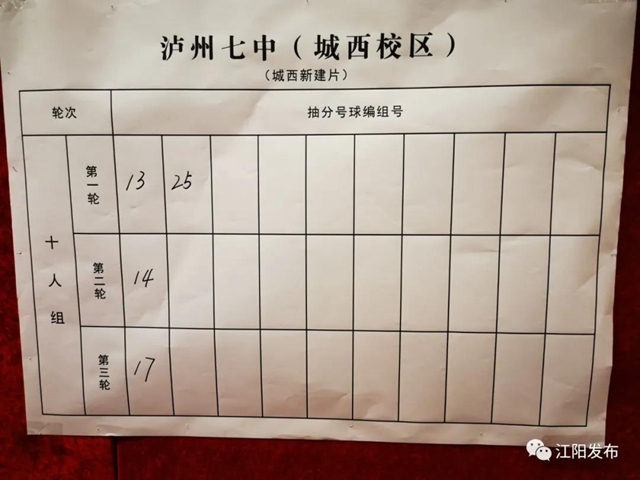 泸州七中（城西校区）
（城西新建片）
轮次 抽分号球编组号
十人组
第一轮 13 25
第二轮 14
第三轮 17
江阳发布